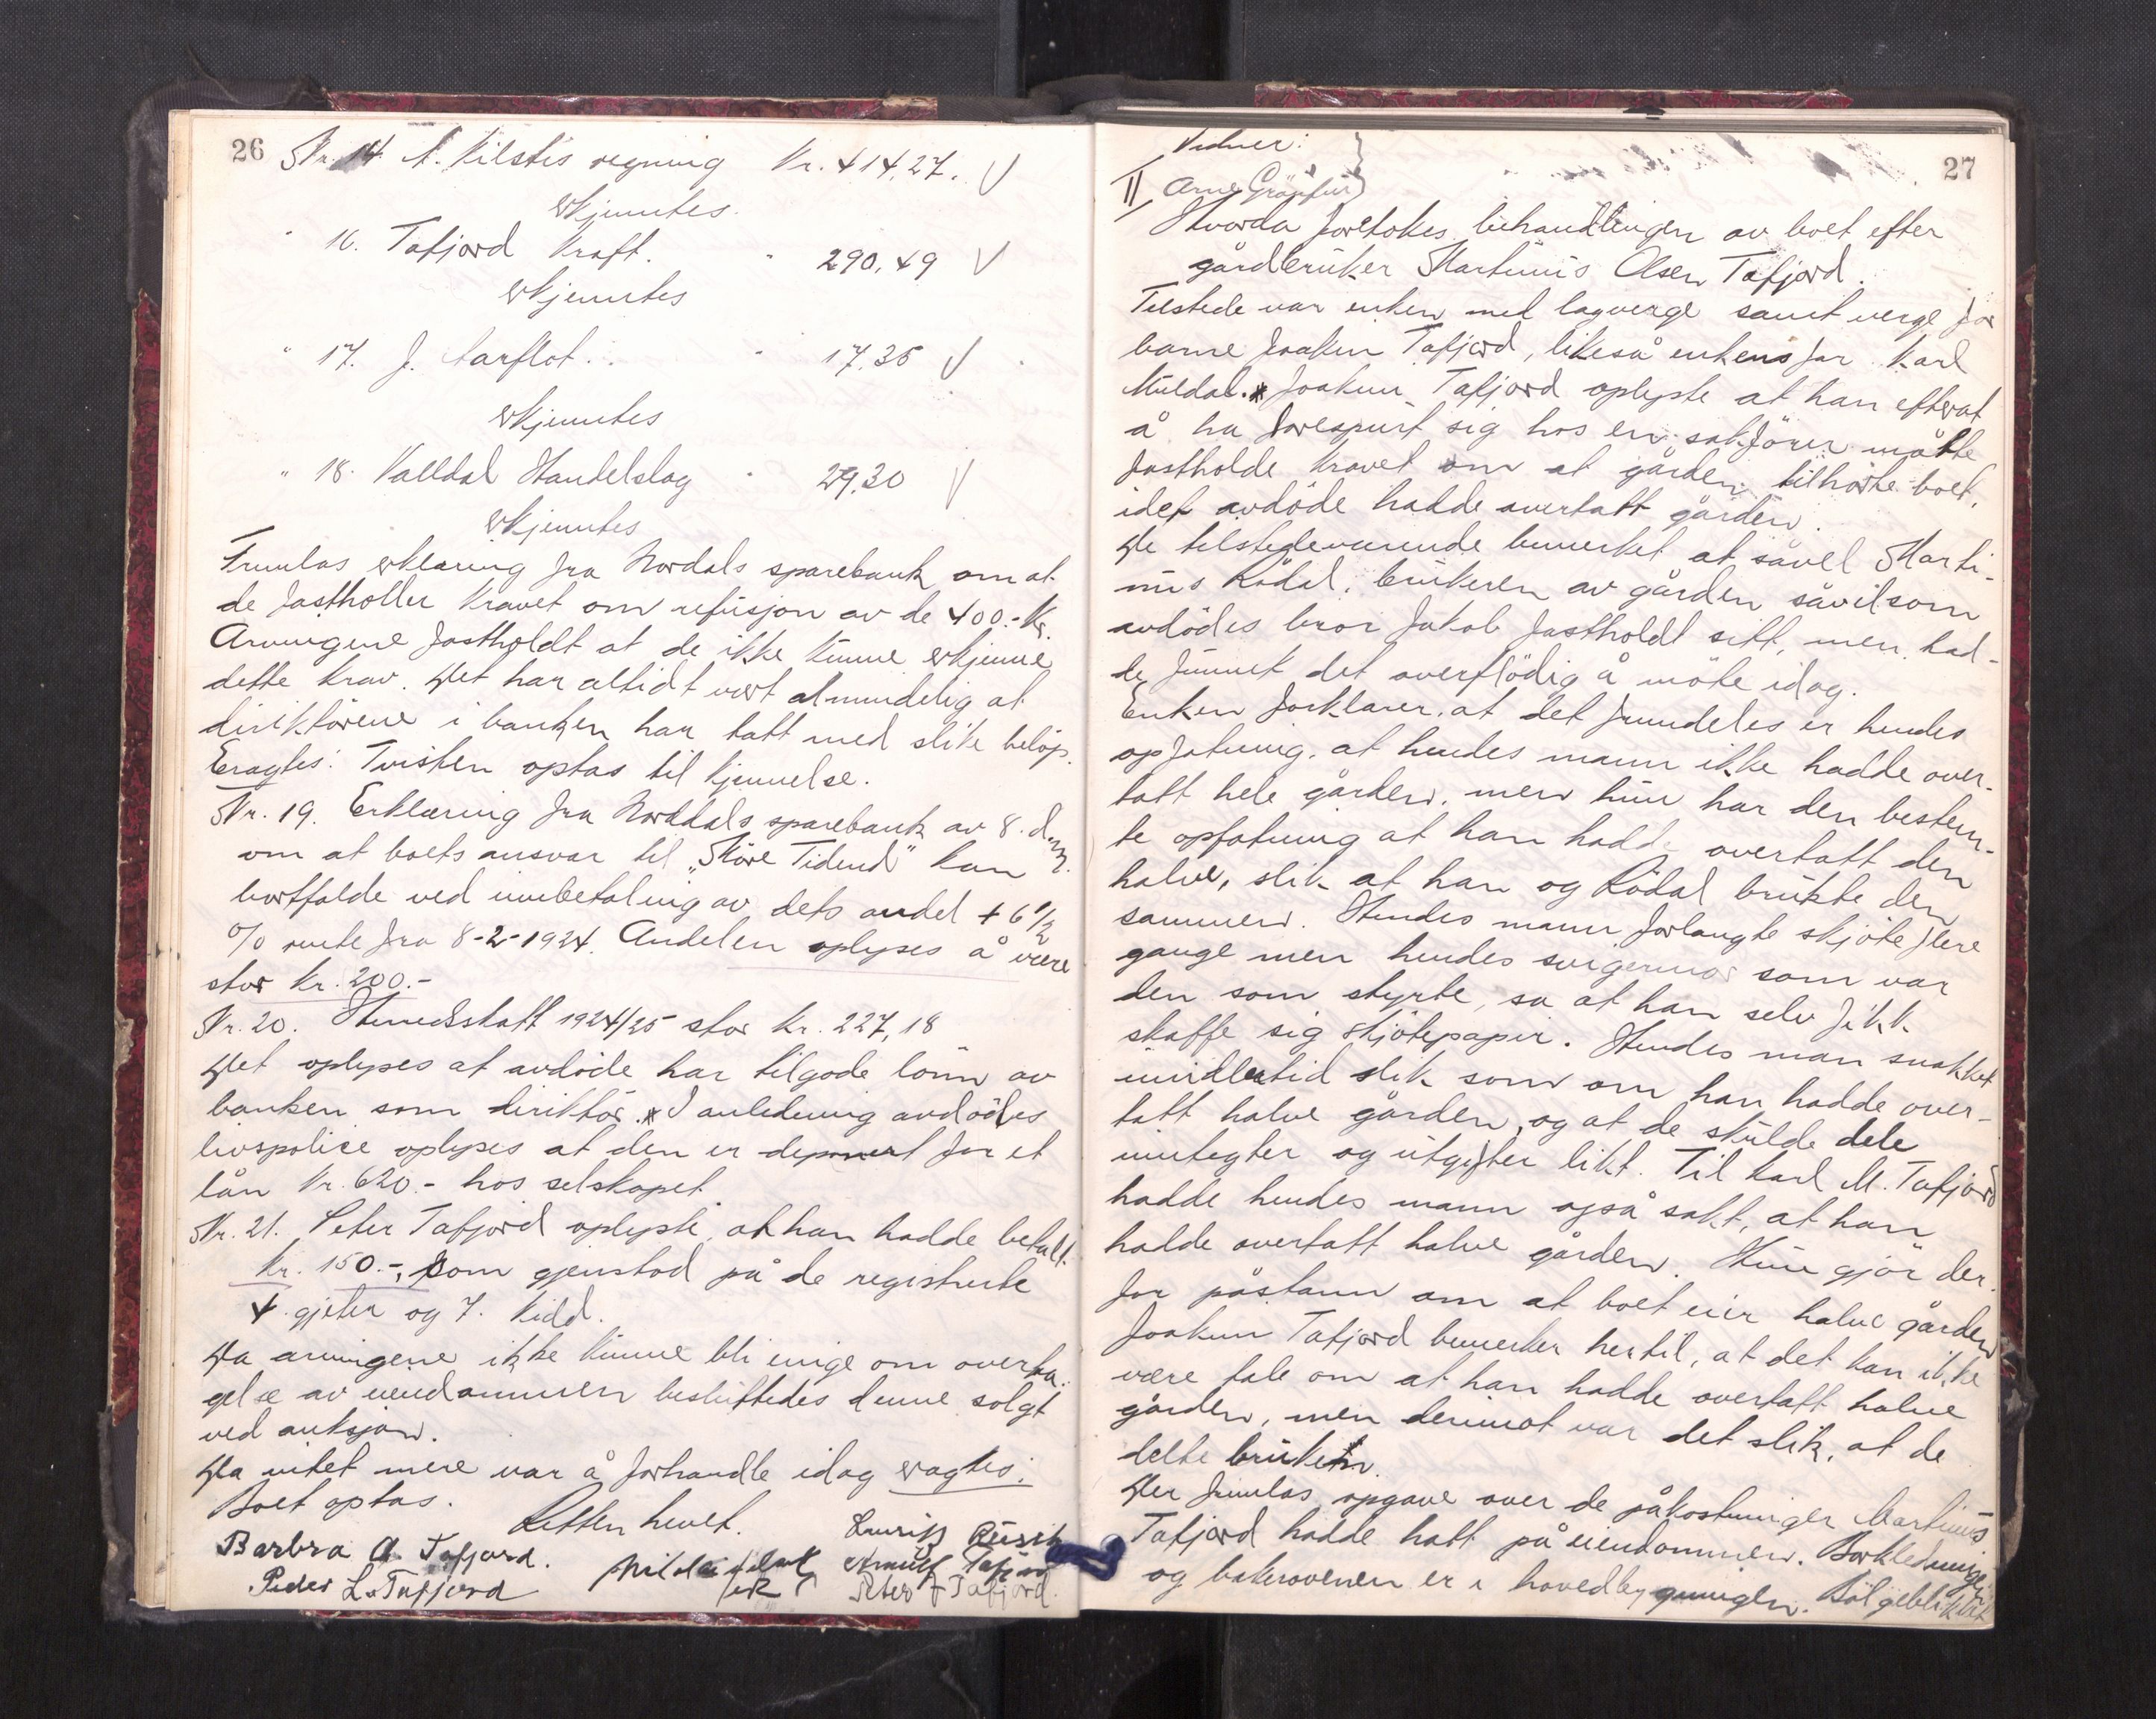 26
Nr. 14. A. Kilstis regning Kr. 414,27. V
erkjentes.
" 16. Tafjord Kraft. " 290,49 V
erkjentes
" 17. J. Aarflot. " 17,35 V
erkjentes
" 18. Valldal Handelslag " 29,30 V
erkjentes
Fremlas erklæring fra Nordals sparebank om at
de fastholder kravet om refusjon av de 400.- kr.
Arvingene fastholdt at de ikke kunne erkjenne
dette krav. Det har altidt vært almindelig at
direktörene i banken har tatt med slike belöp.
Eragtes: Tvisten optas til kjennelse.
Nr. 19. Erklæring fra Norddals sparebank av 8. d.m.
om at boets ansvar til "Möre Tidend" kan
bortfalde ved innbetaling av dets andel + 6 1/2
% rente fra 8-2-1924. Andelen oplyses å være
stor kr. 200.-
Nr. 20. Herredsskatt 1924/25 stor kr. 227,18
Det oplyses at avdöde har tilgode lönn av
banken som direktör. I anledning avdödes
livspolice oplyses at den er deponert for et
lån kr. 620.- hos selskapet.
Nr. 21. Peter Tafjord oplyste, at han hadde betalt
kr. 150.-, som gjenstod på de registrerte
4. gjeter og 7. kidd.
Da arvingene ikke kunne bli enige om overta-
gelse av eiendommen besluttedes denne solgt
ved auksjon.
Da intet mere var å forhandle idag eragtes:
Boet optas.
Retten hevet.
Barbra A. Tafjord.
Peder L. Tafjord
Peter Tafjord.
27
Vidner:
II Arne
Hvorda foretokes behandlingen av boet efter
gårdbruker Martinus Olsen Tafjord.
Tilstede var enken med lagverge samt verge for
barne Joakim Tafjord, likeså enkens far Karl
Muldal. Joakim Tafjord oplyste at han efterat
å ha forespurt sig hos en sakförer måtte
fastholde kravet om at gården tilhörte boet,
idet avdöde hadde overtatt gården.
De tilstedeværende bemerket at såvel Marti-
nus Rödal, brukeren av gården såvelsom
avdödes bror Jakob fastholdt sitt, men had-
de funnet det overflödig å möte idag.
Enken forklarer, at det fremdeles er hendes
opfatning, at hendes mann ikke hadde over-
tatt hele gården, men hun har den bestem-
te opfatning at han hadde overtatt den
halve, slik at han og Rödal brukte den
sammen. Hendes mann forlangte skjöte flere
gange men hendes svigermor som var
den som styrte, sa at han selv fikk
skaffe sig skjötepapir. Hendes man snakket
imidlertid slik som om han hadde over-
tatt halve gården, og at de skulde dele
inntegter og utgifter likt. Til Karl M. Tafjord
hadde hendes mann også sakt, at han
hadde overtatt halve gården. Hun gjör der-
for påstann om at boet eier halve gården
Joakim Tafjord bemerker hertil, at det kan ikke
være tale om at han hadde overtatt halve
gården, men derimot var det slik, at de
delte bruken.
Der fremlas opgave over de påkostninger Martinus
Tafjord hadde hatt på eiendommen. Borkledningen
og bakerovenen er i hovedbygningen.